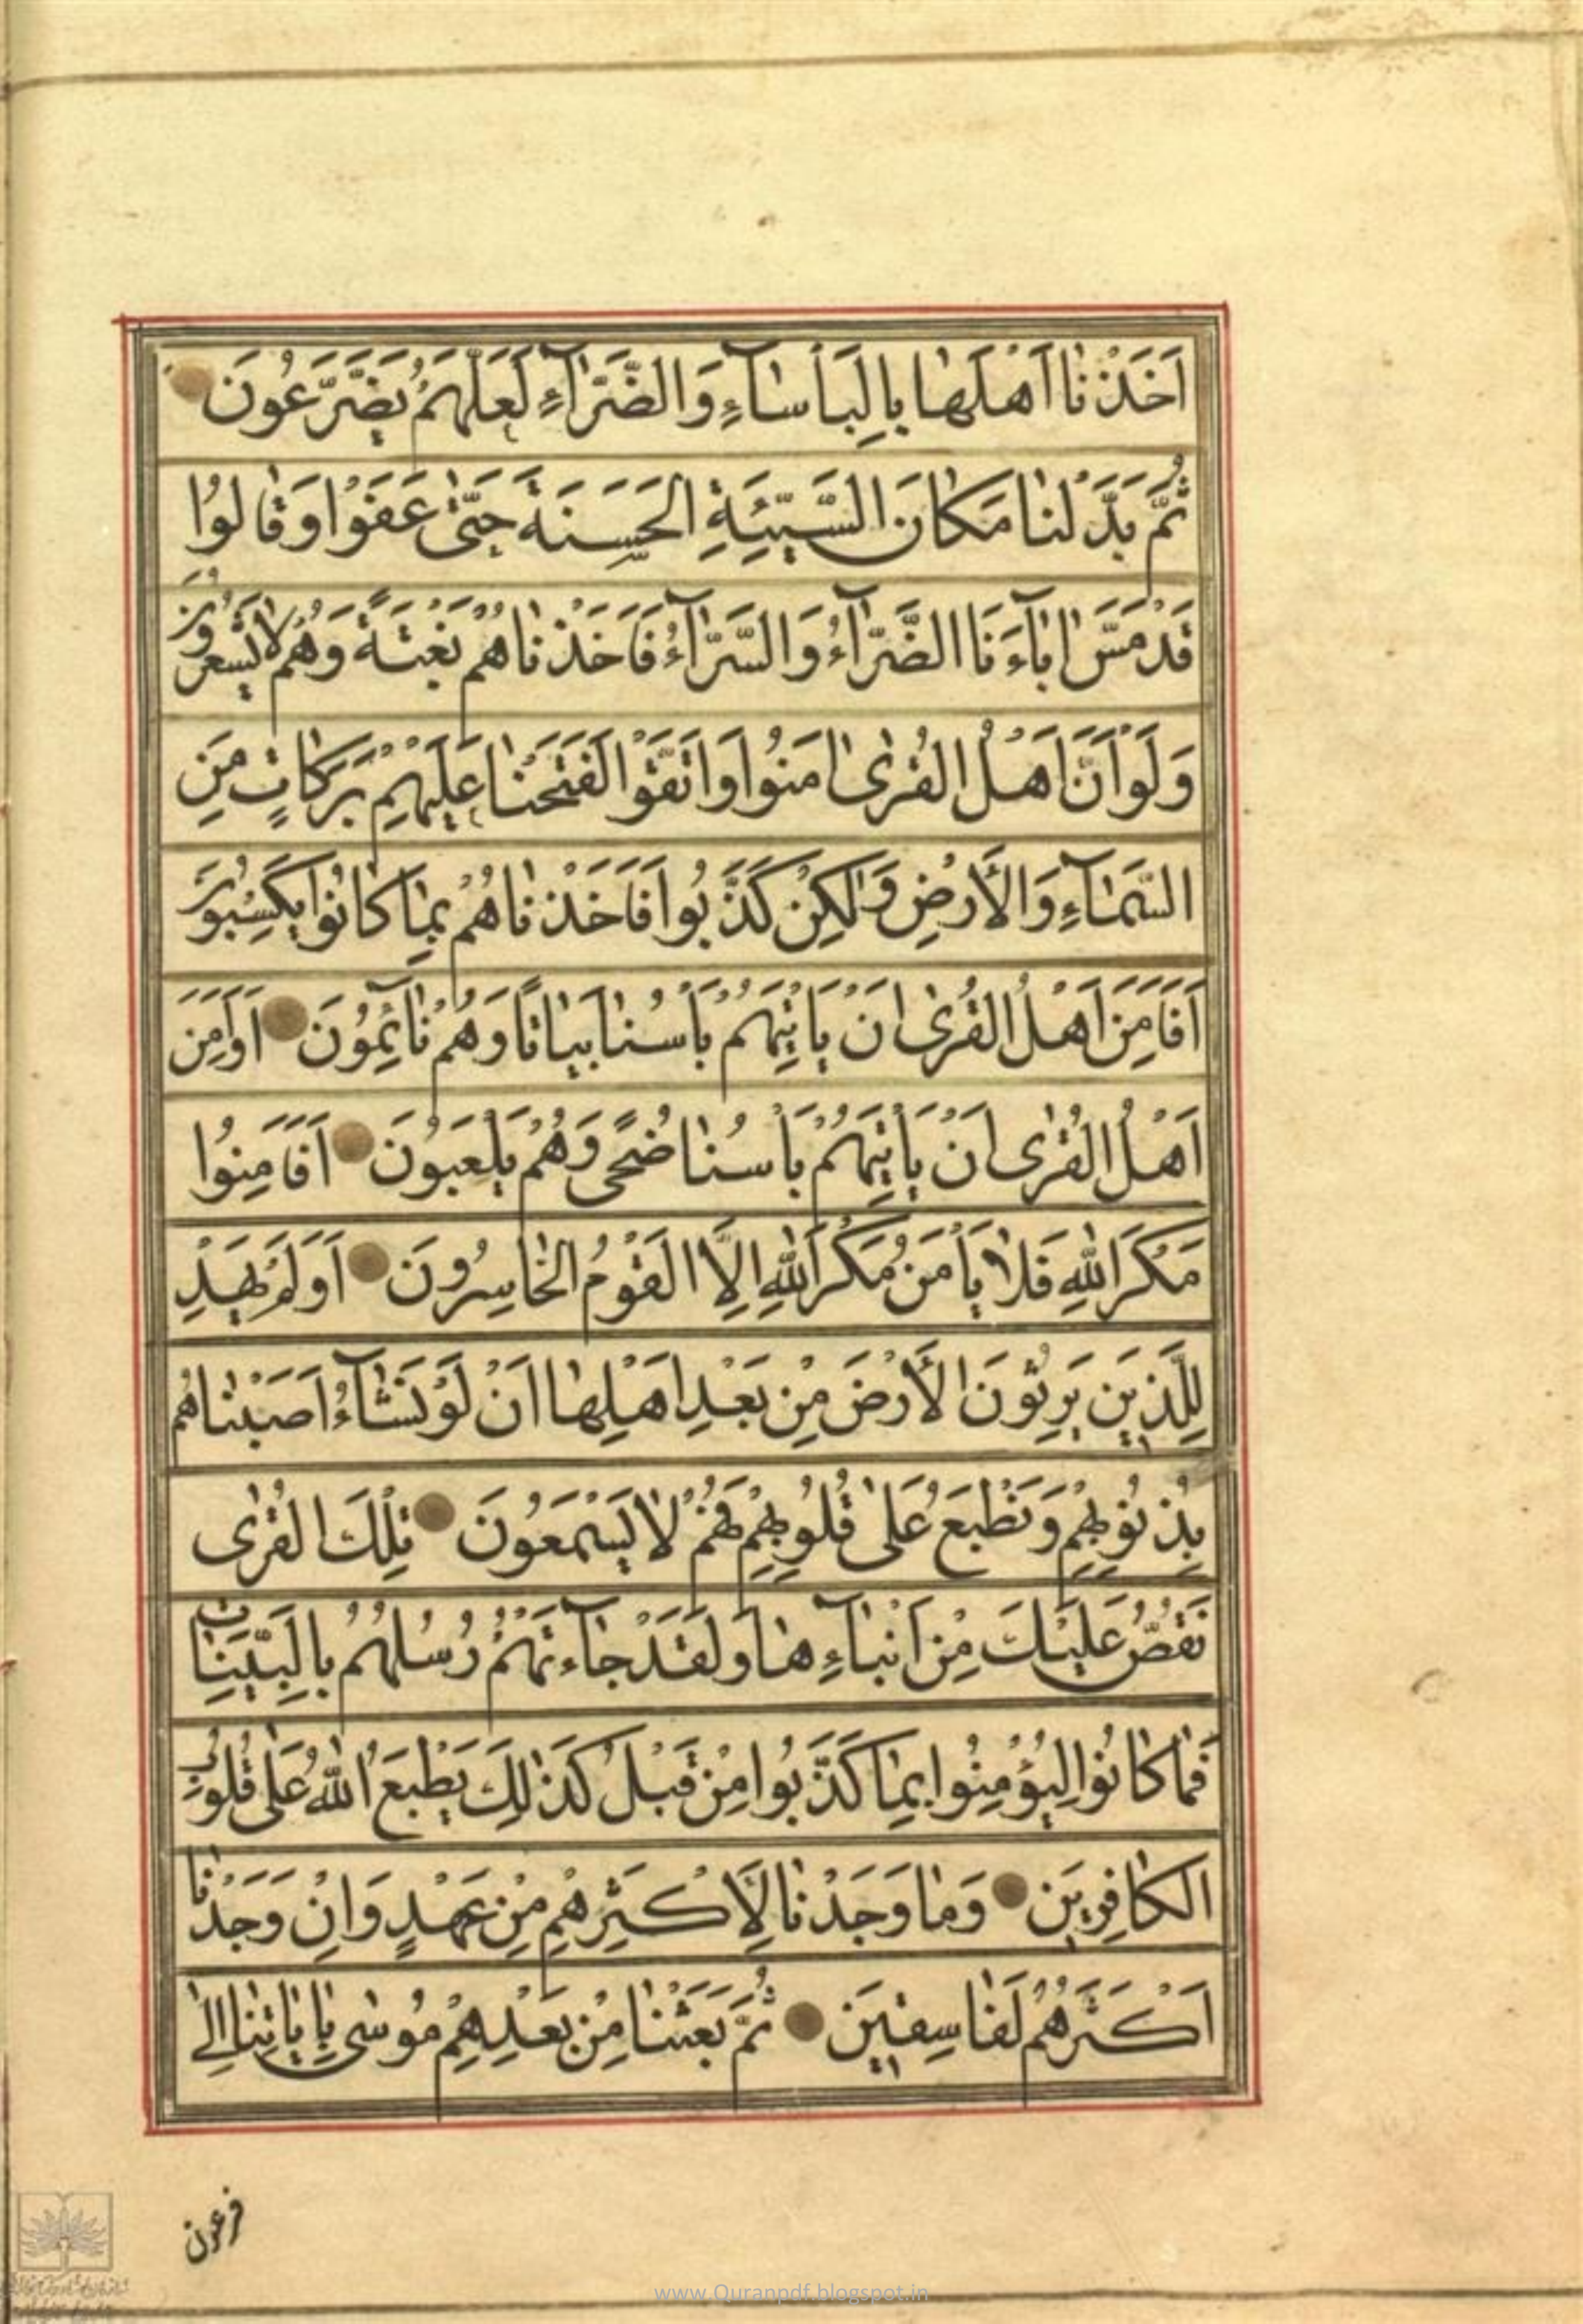 اَخَذْنٰا اَهْلَهٰا بِالْبَأْسٰآءِ وَالضَّرّٰآءِ لَعَلَّهُمْ يَضَّرَّعُونَ
ثُمَّ بَدَّلْنٰا مَكٰانَ السَّيِّئَةِ الْحَسَنَةَ حَتّٰى عَفَوْا وَقٰالُوا
قَدْ مَسَّ اٰبٰآءَنَا الضَّرّٰآءُ وَالسَّرّٰآءُ فَاَخَذْنٰاهُمْ بَغْتَةً وَهُمْ لٰا يَشْعُرُونَ
وَلَوْ اَنَّ اَهْلَ الْقُرٰى اٰمَنُوا وَاتَّقَوْا لَفَتَحْنٰا عَلَيْهِمْ بَرَكٰاتٍ مِنَ
السَّمٰآءِ وَالْأَرْضِ وَلٰكِنْ كَذَّبُوا فَاَخَذْنٰاهُمْ بِمٰا كٰانُوا يَكْسِبُونَ
اَفَاَمِنَ اَهْلُ الْقُرٰى اَنْ يَأْتِيَهُمْ بَأْسُنٰا بَيٰاتًا وَهُمْ نٰآئِمُونَ اَوَاَمِنَ
اَهْلُ الْقُرٰى اَنْ يَأْتِيَهُمْ بَأْسُنٰا ضُحًى وَهُمْ يَلْعَبُونَ اَفَاَمِنُوا
مَكْرَ اللّٰهِ فَلٰا يَأْمَنُ مَكْرَ اللّٰهِ اِلَّا الْقَوْمُ الْخٰاسِرُونَ اَوَلَمْ يَهْدِ
لِلَّذِينَ يَرِثُونَ الْأَرْضَ مِنْ بَعْدِ اَهْلِهٰا اَنْ لَوْ نَشٰآءُ اَصَبْنٰاهُمْ
بِذُنُوبِهِمْ وَنَطْبَعُ عَلٰى قُلُوبِهِمْ فَهُمْ لٰا يَسْمَعُونَ تِلْكَ الْقُرٰى
نَقُصُّ عَلَيْكَ مِنْ اَنْبٰآءِهٰا وَلَقَدْ جٰآءَتْهُمْ رُسُلُهُمْ بِالْبَيِّنٰاتِ
فَمٰا كٰانُوا لِيُؤْمِنُوا بِمٰا كَذَّبُوا مِنْ قَبْلُ كَذٰلِكَ يَطْبَعُ اللّٰهُ عَلٰى قُلُوبِ
الْكٰافِرِينَ وَمٰا وَجَدْنٰا لِأَكْثَرِهِمْ مِنْ عَهْدٍ وَاِنْ وَجَدْنٰا
اَكْثَرَهُمْ لَفٰاسِقِينَ ثُمَّ بَعَثْنٰا مِنْ بَعْدِهِمْ مُوسٰى بِاٰيٰاتِنٰا اِلٰى
فرعون
www.Quranpdf.blogspot.in